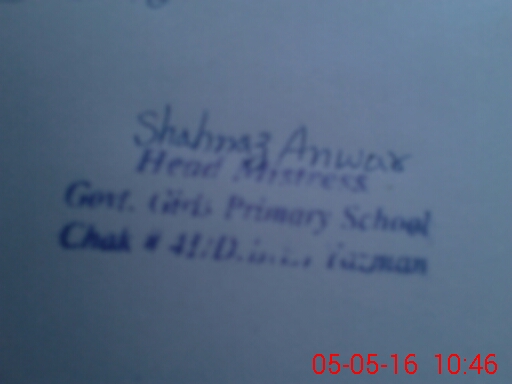 Shahnaz Anwar
Head Mistress
Govt. Girls Primary School
Chak # Yazman
05-05-16 10:46